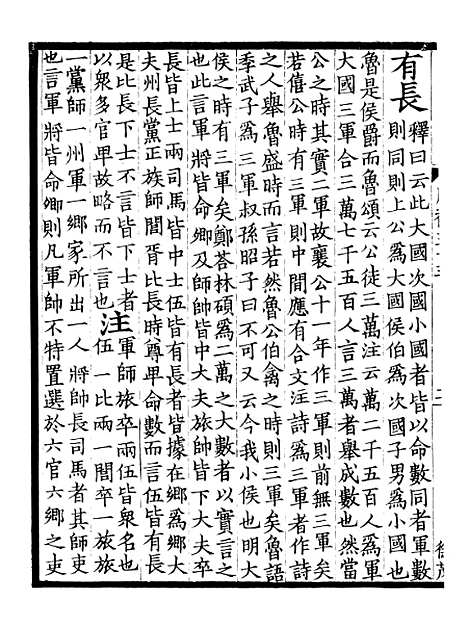 有長釋曰云此大國次國小國者皆以命數同者軍數
則同則上公爲大國侯伯爲次國子男爲小國也
魯是侯爵而魯頌云公徒三萬注云萬二千五百人爲軍
大國三軍合三萬七千五百人言三萬者舉成數也然當
公之時其實二軍故襄公十一年作三軍則前無三軍矣
若僖公時有三軍則中間應有合文注詩爲三軍者作詩
之人舉魯盛時而言若然魯公伯禽之時則三軍矣魯語
季武子爲三軍叔孫昭子曰不可又云今我小侯也明大
侯之時有三軍矣鄭荅林碩爲二萬之大數者以實言之
也此言軍將皆命卿及師帥皆中大夫旅帥皆下大夫卒
長皆上士兩司馬皆中士伍皆有長者皆據在鄉爲鄉大
夫州長黨正族師閭胥比長時尊卑命數而言伍皆有長
是比長下士不言皆下士者
以衆多官卑故略而不言也
注軍師旅卒兩伍皆衆名也
伍一比兩一閭卒一旅旅
一黨師一州軍一鄉家所出一人將帥長司馬者其師吏
也言軍將皆命卿則凡軍帥不特置選於六官六鄉之吏